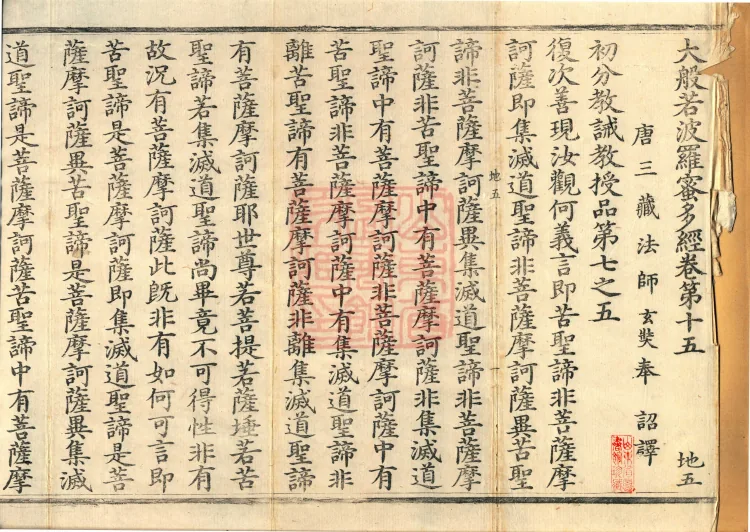 大般若波羅蜜多經卷第十五 地五
唐三藏法師玄奘奉 詔譯
初分教誡教授品第七之五
復次善現汝觀何義言即苦聖諦非菩薩摩
訶薩即集滅道聖諦非菩薩摩訶薩異苦聖
地五 一
諦非菩薩摩訶薩異集滅道聖諦非菩薩摩
訶薩非苦聖諦中有菩薩摩訶薩非集滅道
聖諦中有菩薩摩訶薩非菩薩摩訶薩中有
苦聖諦非菩薩摩訶薩中有集滅道聖諦非
離苦聖諦有菩薩摩訶薩非離集滅道聖諦
有菩薩摩訶薩耶世尊若菩提若薩埵若苦
聖諦若集滅道聖諦尚畢竟不可得性非有
故況有菩薩摩訶薩此既非有如何可言即
苦聖諦是菩薩摩訶薩即集滅道聖諦是菩
薩摩訶薩異苦聖諦是菩薩摩訶薩異集滅
道聖諦是菩薩摩訶薩苦聖諦中有菩薩摩